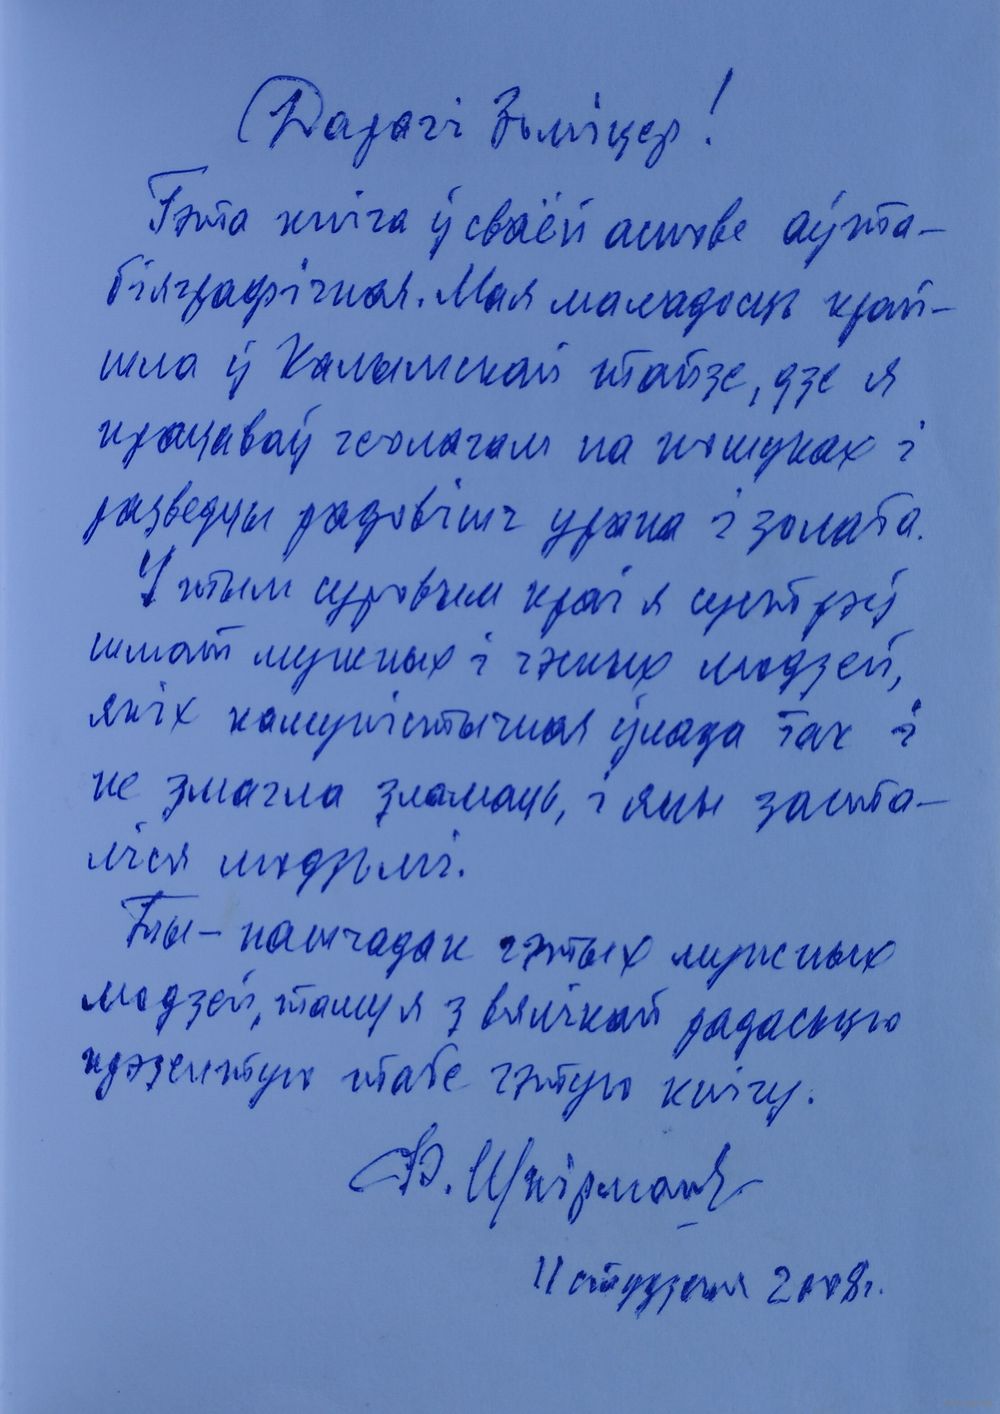 Дарагі Зьміцер!
Гэта кніга ў сваёй аснове аўта-
біяграфічная. Мая маладосць прай-
шла ў Калымскай тайзе, дзе я
працаваў геолагам на пошуках і
разведцы радовішч урана і золата.
У тым суровым краі я сустрэў
шмат мужных і гжных людзей,
якіх камуністычная ўлада так і
не змагла зламаць, і яны заста-
ліся людзьмі.
Ты – нашчадак гэтых мужных
людзей, таму я з вялікай радасьцю
прэзентую табе гэтую кнігу.
11 студзеня 2008г.